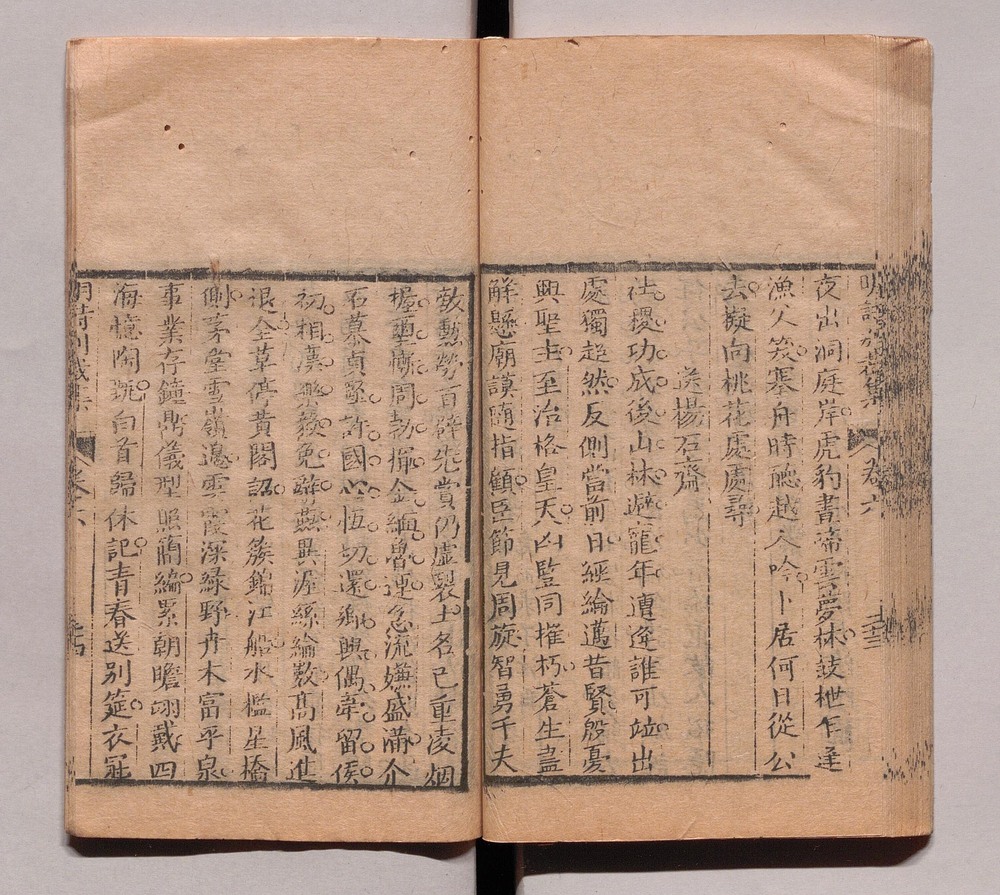 明詩別裁集 卷六 三
夜出洞庭岸虎豹晝啼雲夢林鼓枻乍逢
漁父笑搴舟時聽越人吟卜居何日從公
去擬向桃花處處尋
送楊石齋
社稷功成後山林避寵年遭逢誰可竝出
處獨超然反側當前日經綸邁昔賢殷憂
興聖主至治格皇天凶豎同摧朽蒼生盡
解懸廟謨隨指顧臣節見周旋智勇千夫
敵勲勞百辟先賞仍虛裂土名已重凌烟
握璽慚周勃揮金繼魯連急流嫌盛滿介
石慕貞堅許國心恆切還鄉興偶牽留侯
初相漢疏傅免辭燕異渥絲綸敷高風進
退全草停黃閣詔花簇錦江船水檻星橋
側茅堂雪嶺邊雲霞深綠野卉木富平泉
事業存鐘鼎儀型照簡編累朝瞻翊戴四
海憶陶甄白首歸休記青春送別筵衣冠
明詩別裁集 卷六